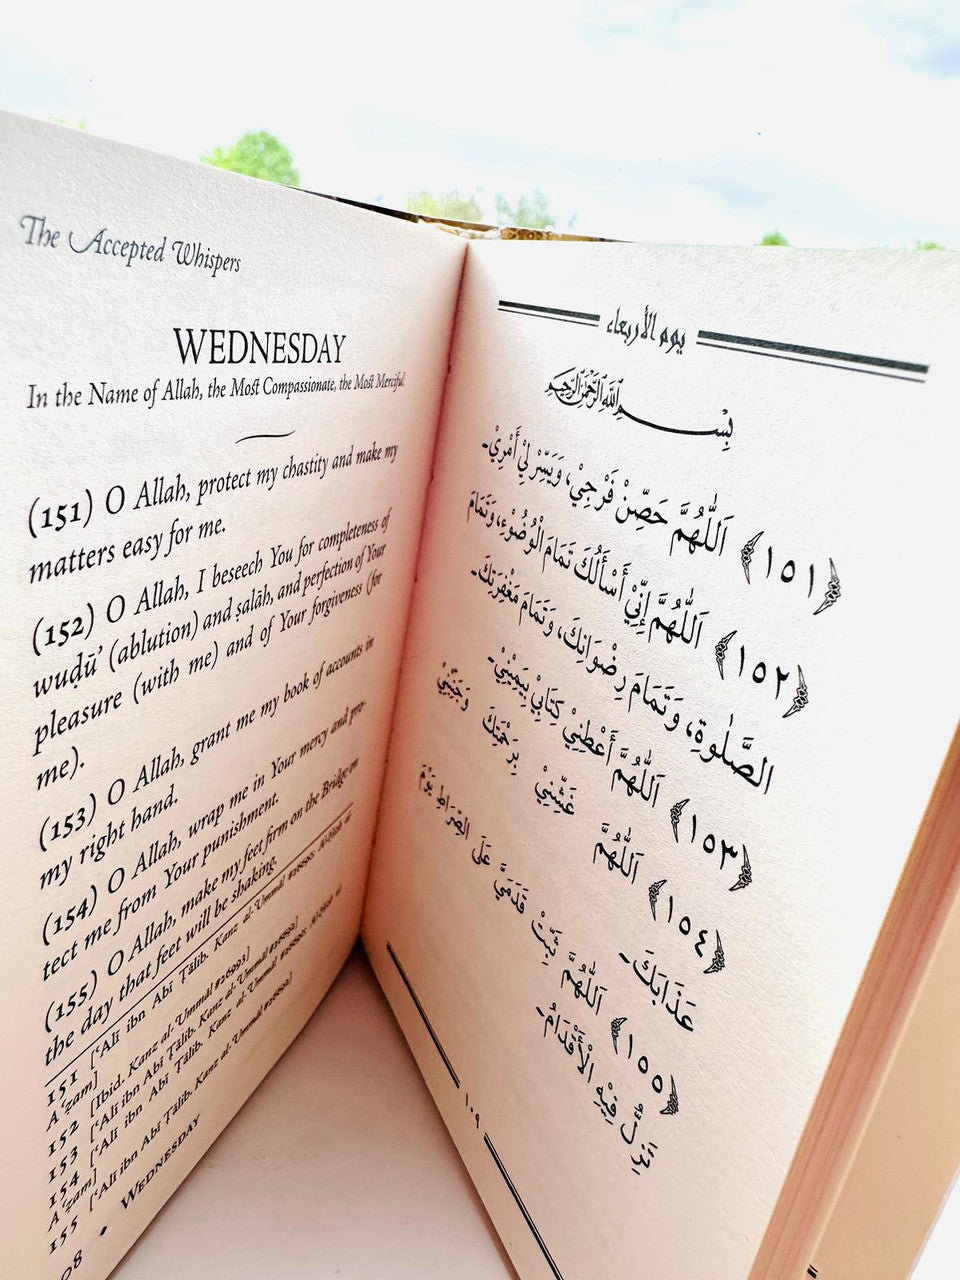 The Accepted Whispers
WEDNESDAY
In the Name of Allah, the Most Compassionate, the Most Merciful
(151) O Allah, protect my chastity and make my
matters easy for me.
(152) O Allah, I beseech You for completeness of
wuḍū’ (ablution) and ṣalāh, and perfection of Your
pleasure (with me) and of Your forgiveness (for
me).
(153) O Allah, grant me my book of accounts in
my right hand.
(154) O Allah, wrap me in Your mercy and pro-
tect me from Your punishment.
(155) O Allah, make my feet firm on the Bridge on
the day that feet will be shaking.
151 [‘Alī ibn Abī Ṭālib. Kanz al-‘Ummāl
A‘ẓam]
152 [Ibid. Kanz al-‘Ummāl #26993]
153 [‘Alī ibn Abī Ṭālib. Kanz al-‘Ummāl
154 [‘Alī ibn Abī Ṭālib. Kanz al-‘Ummāl
A‘ẓam]
155 [‘Alī ibn Abī Ṭālib. Kanz al-‘Ummāl
08 • WEDNESDAY
يوم الأربعاء
بِسْمِ اللهِ الرَّحْمٰنِ الرَّحِيْمِ
﴿١٥١﴾ اَللّٰهُمَّ حَصِّنْ فَرْجِيْ، وَيَسِّرْ لِيْ أَمْرِيْ-
﴿١٥٢﴾ اَللّٰهُمَّ إِنِّيْ أَسْأَلُكَ تَمَامَ الْوُضُوْءِ، وَتَمَامَ
الصَّلٰوةِ، وَتَمَامَ رِضْوَانِكَ، وَتَمَامَ مَغْفِرَتِكَ-
﴿١٥٣﴾ اَللّٰهُمَّ أَعْطِنِيْ كِتَابِيْ بِيَمِيْنِيْ-
﴿١٥٤﴾ اَللّٰهُمَّ غَشِّنِيْ بِرَحْمَتِكَ وَجَنِّبْنِيْ
عَذَابَكَ-
﴿١٥٥﴾ اَللّٰهُمَّ ثَبِّتْ قَدَمَيَّ عَلَى الصِّرَاطِ يَوْمَ
تَزِلُّ فِيْهِ الْأَقْدَامُ-
١٠٩